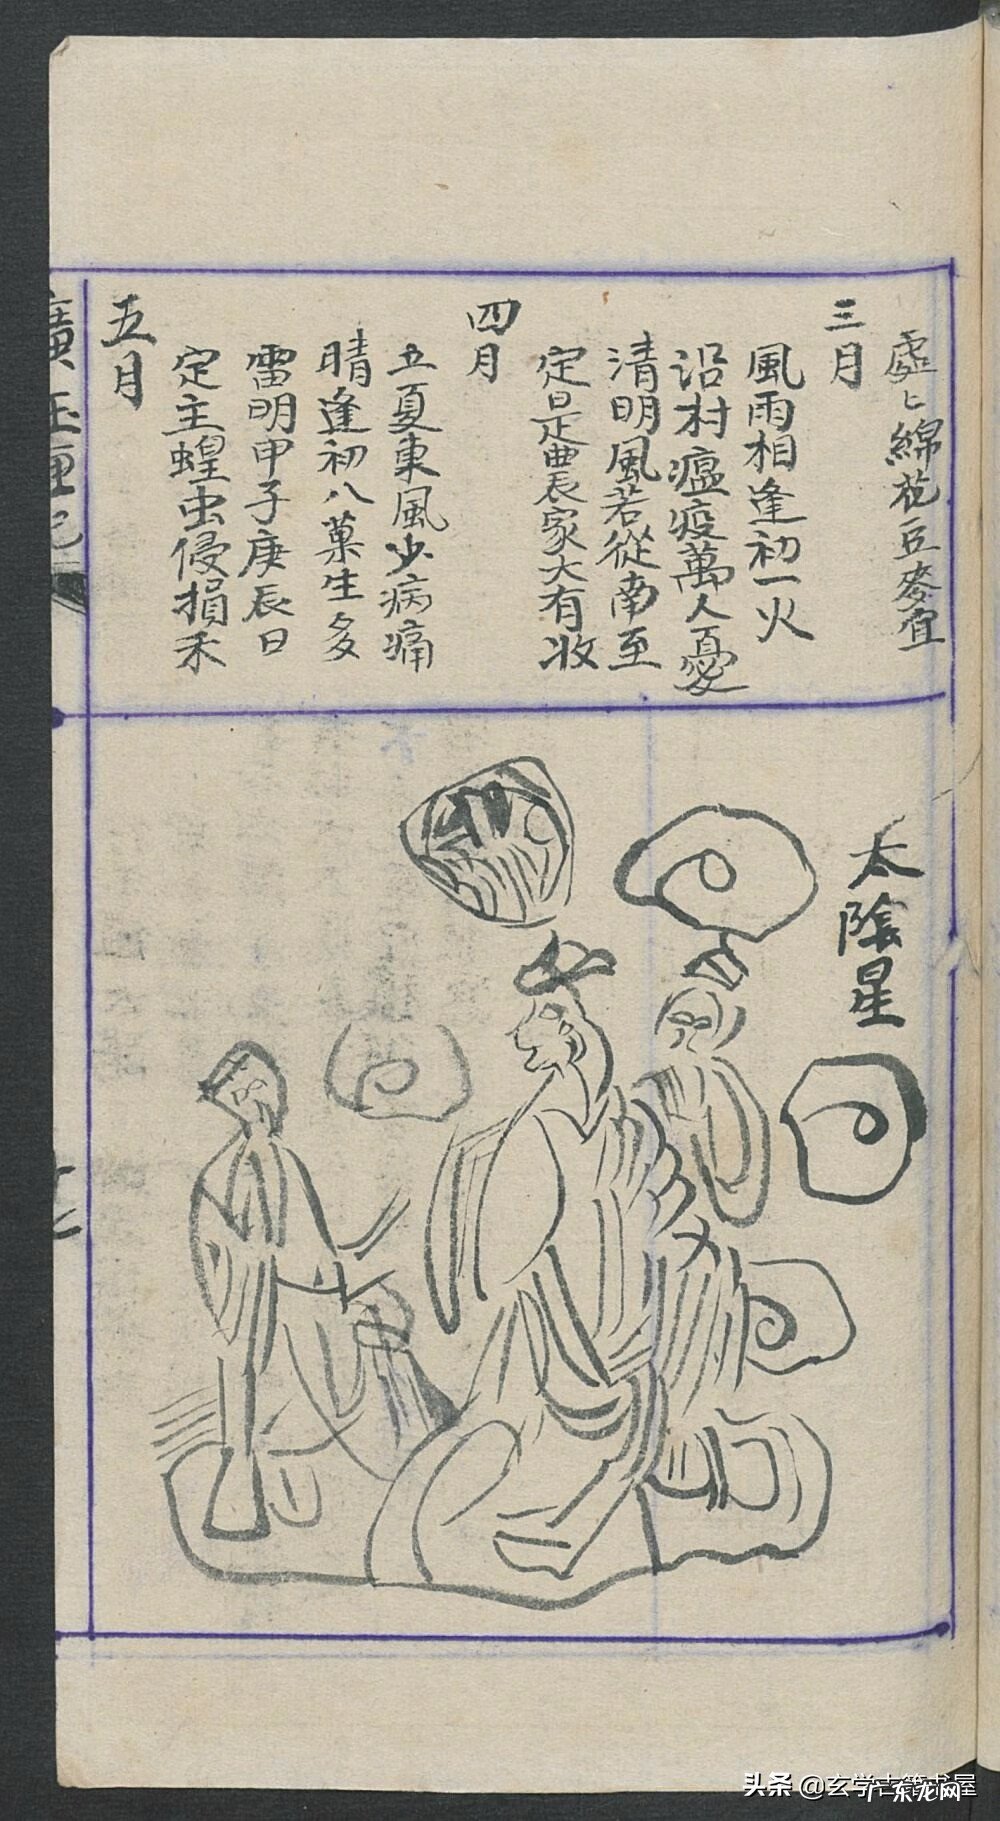 處〻綿花豆麥宜
三月
風雨相逢初一火
沿村瘟疫萬人憂
清明風若從南至
定是農家大有收
四月
立夏東風少病痛
晴逢初八菓生多
雷明甲子庚辰日
定主蝗虫侵損禾
五月
廣玉匣記
太陰星
头条 @玄学古籍书屋
广东龙网